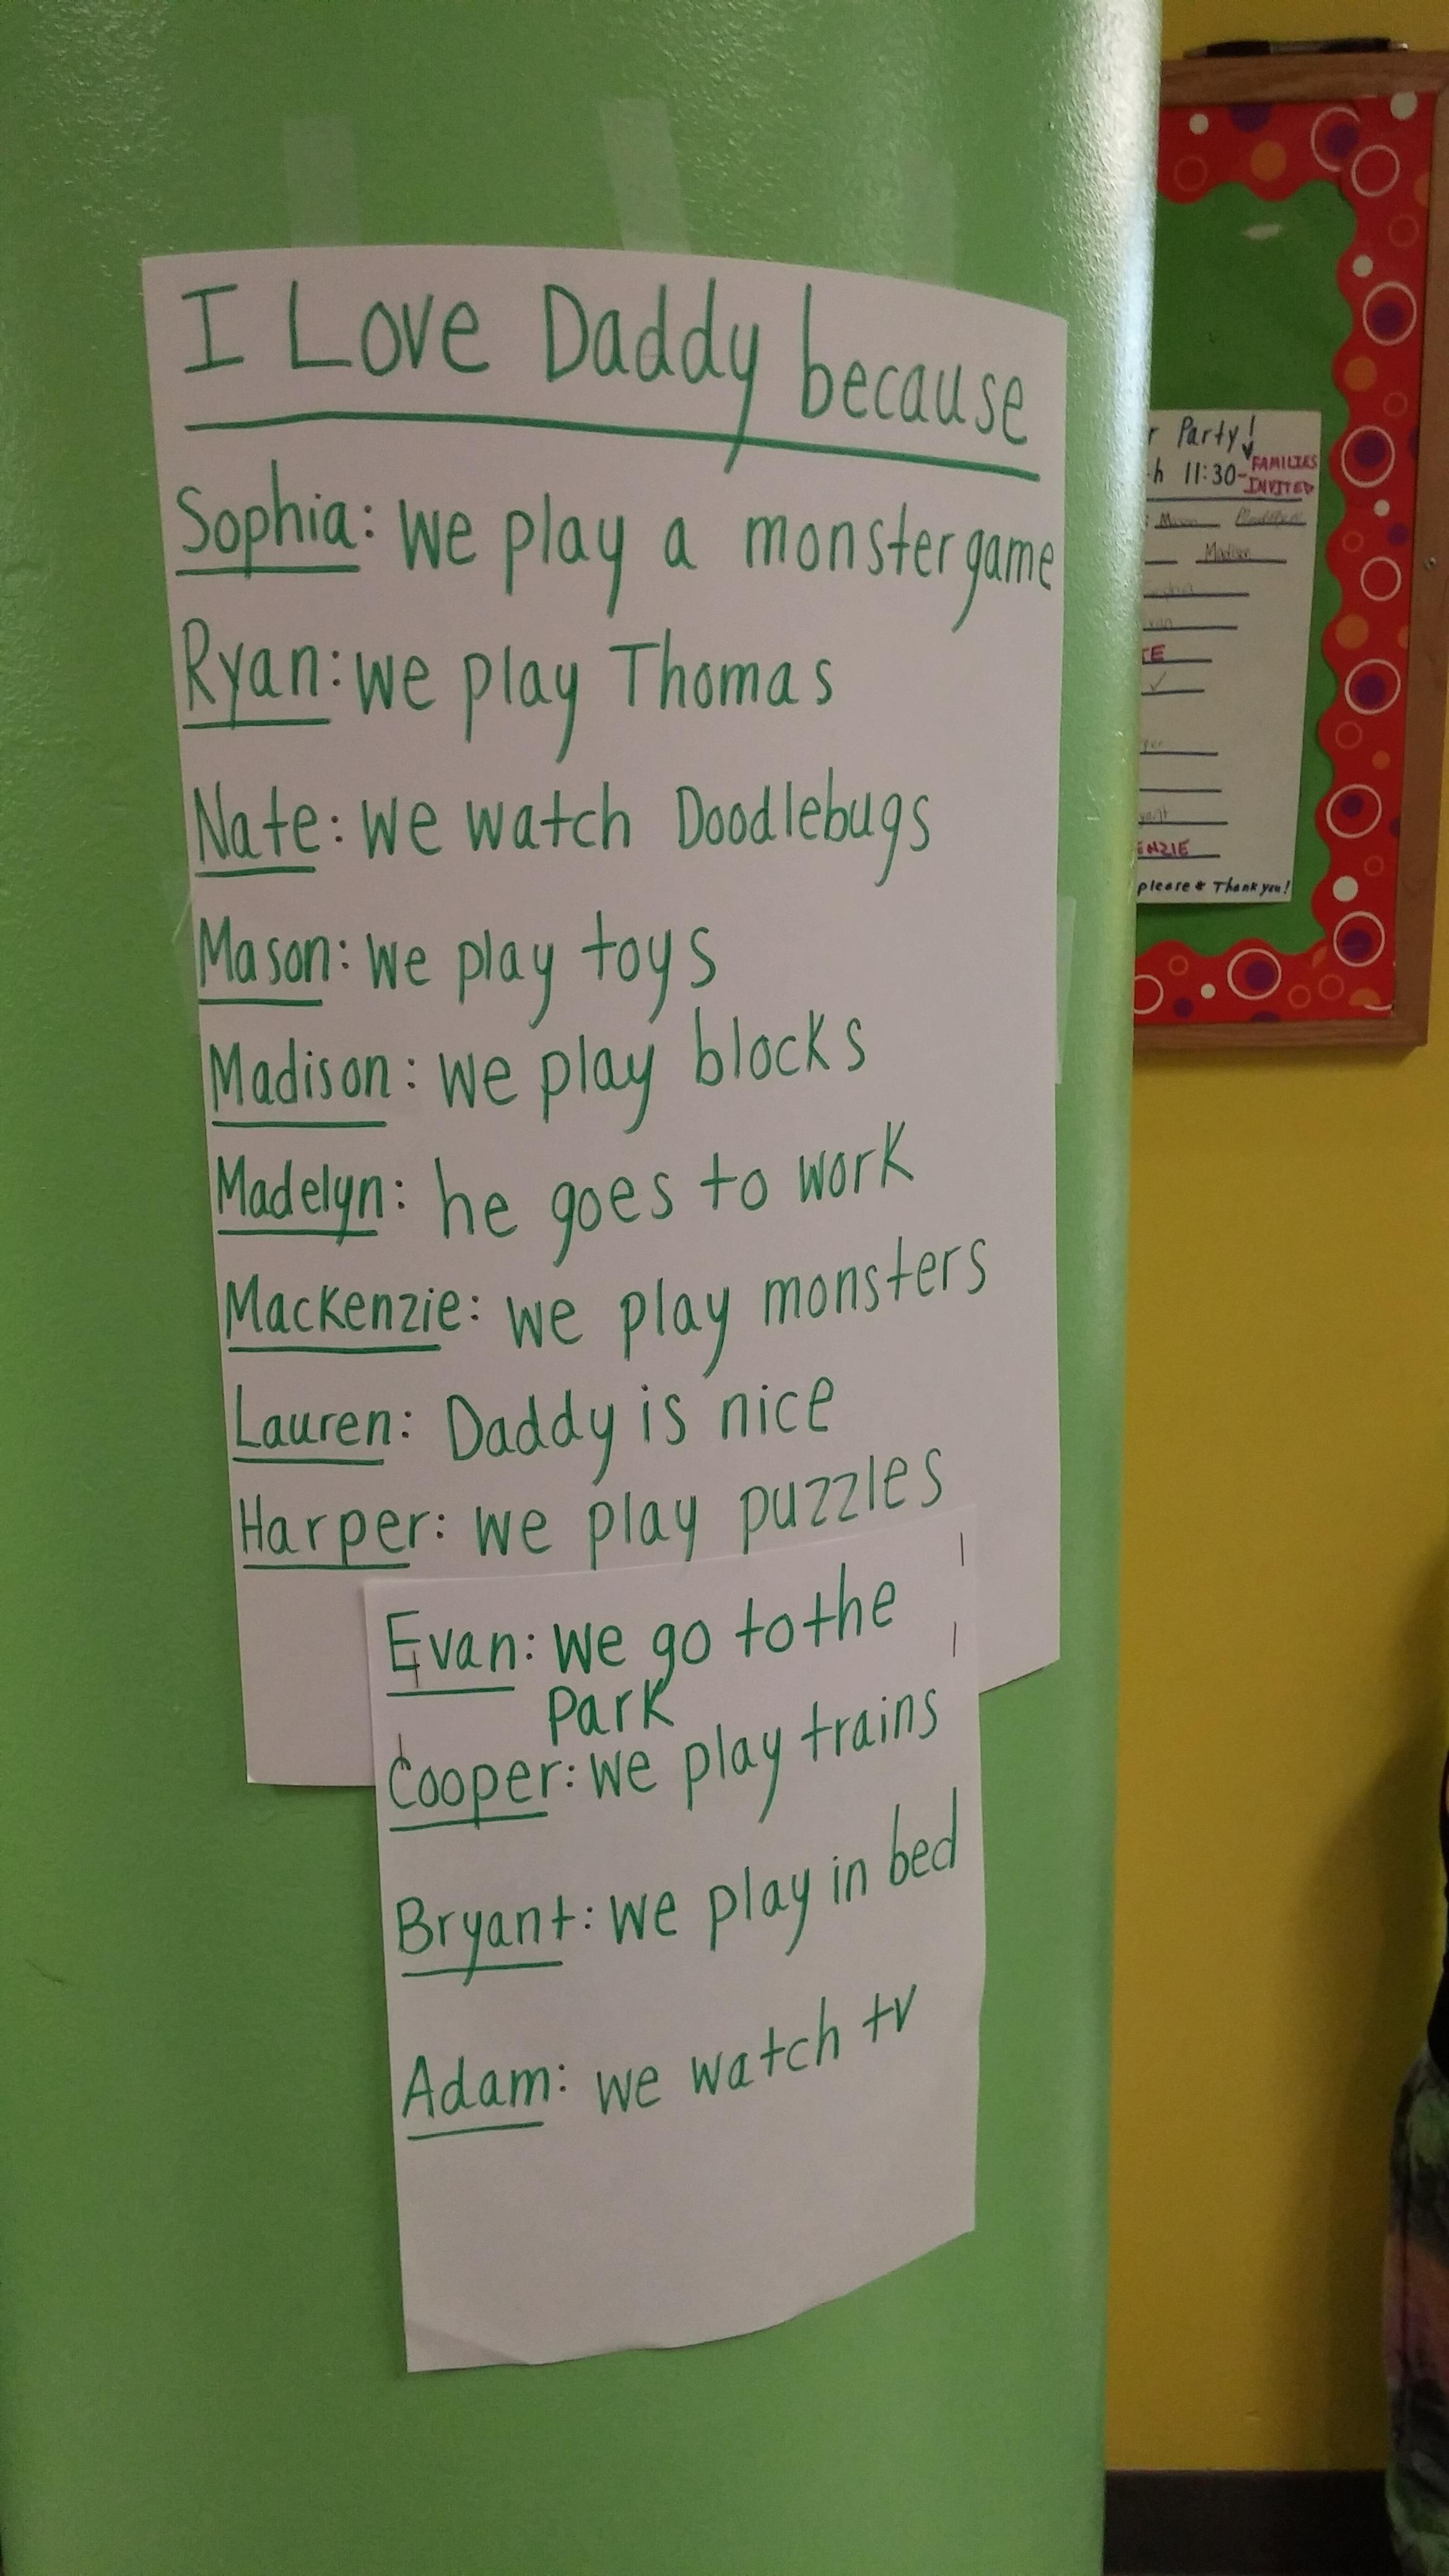 I Love Daddy because
Sophia: we play a monster game
Ryan: we play Thomas
Nate: we watch Doodlebugs
Mason: we play toys
Madison: we play blocks
Madelyn: he goes to work
Mackenzie: we play monsters
Lauren: Daddy is nice
Harper: we play puzzles
Evan: we go to the
Park
Cooper: we play trains
Bryant: we play in bed
Adam: we watch tv
r Party!
h 11:30- FAMILIES
INVITED
Mason
Madison
ENZIE
please & Thank you!